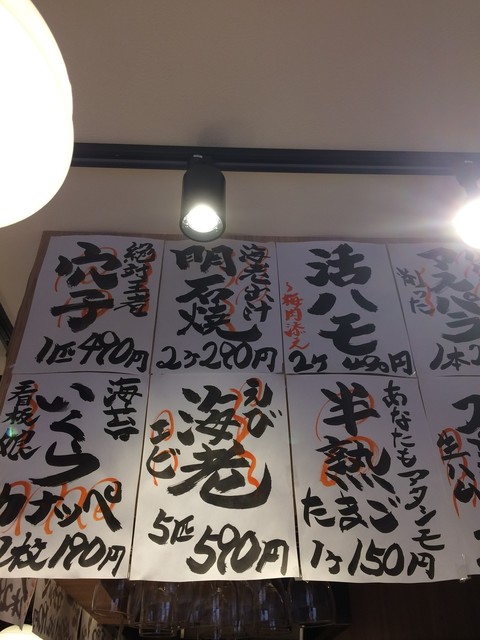 絶対王者
穴子
1匹490円
海老だし汁
明石焼
2ヶ280円
活ハモ
〜梅肉添え
2ヶ 450円
アスパラ
1本
海苔
いくら
カナッペ
看板娘
1枚190円
えび
海老
エビ
5匹
590円
あなたもアタシモ
半熟
たまご
1ヶ150円